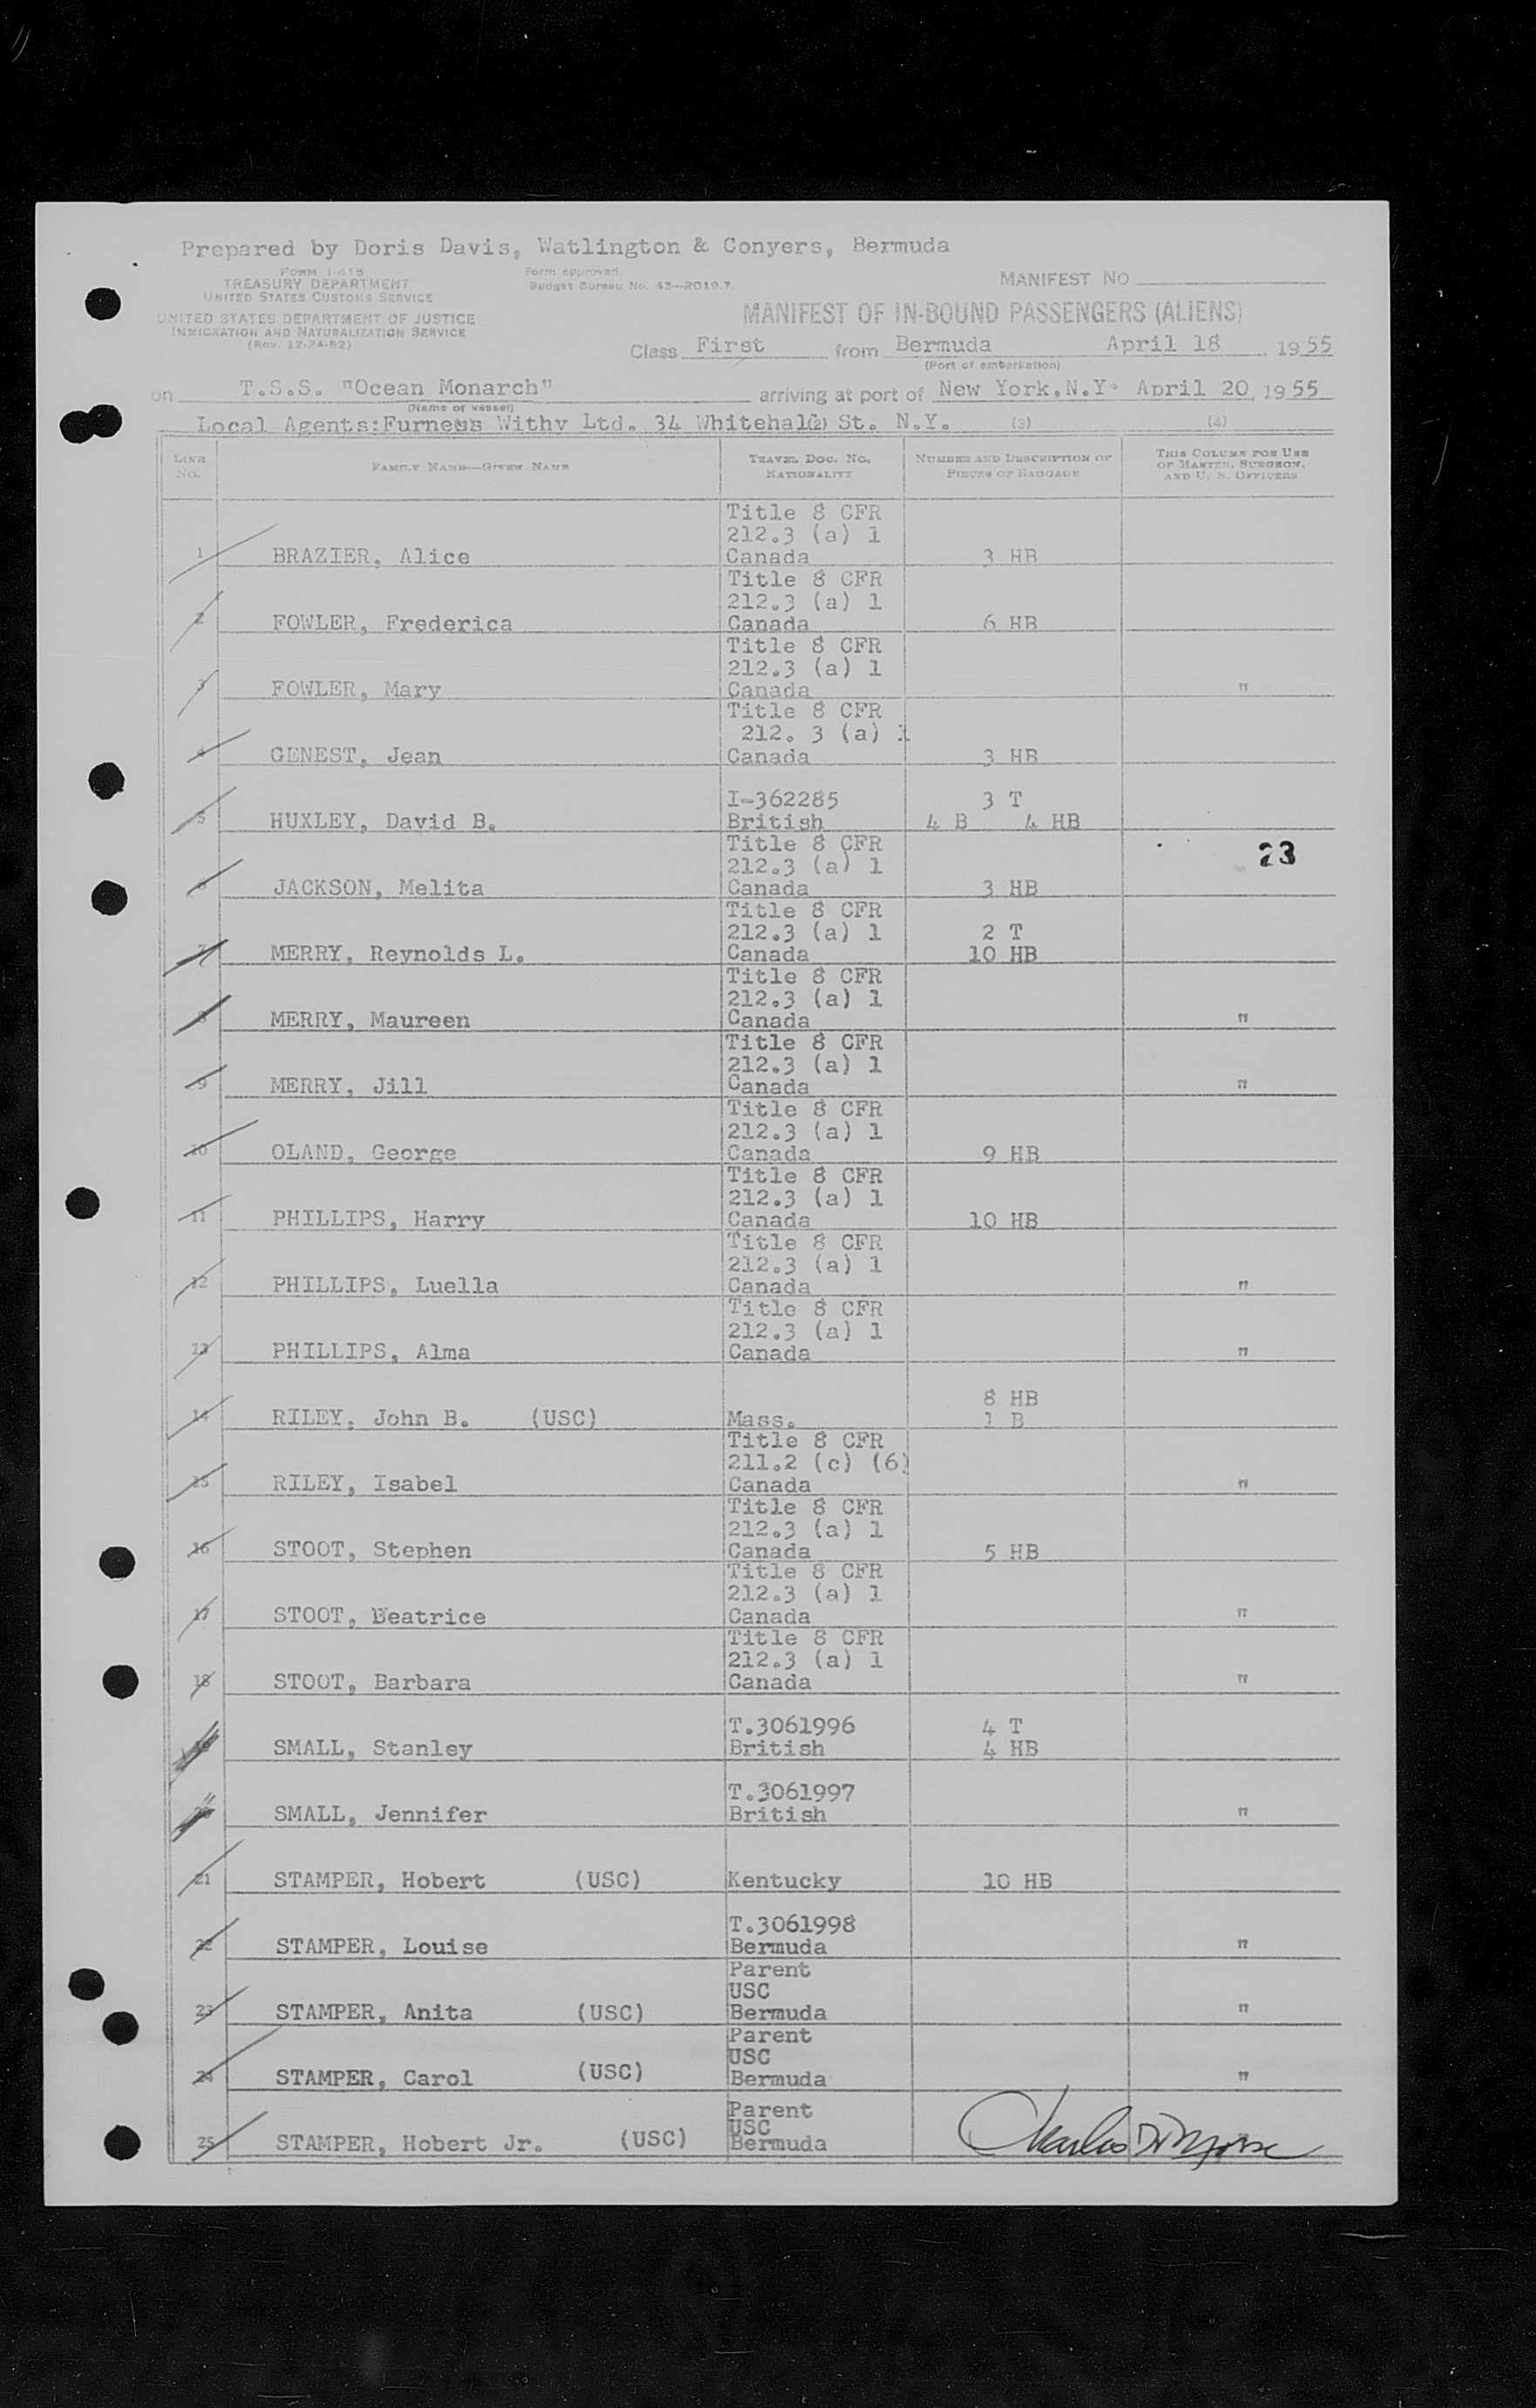 Prepared by Doris Davis, Watlington & Conyers, Bermuda
FORM I-418
TREASURY DEPARTMENT
UNITED STATES CUSTOMS SERVICE
UNITED STATES DEPARTMENT OF JUSTICE
IMMIGRATION AND NATURALIZATION SERVICE
(Rev. 12-24-52)
Form approved.
Budget Bureau No. 43—R019.7.
MANIFEST NO
MANIFEST OF IN-BOUND PASSENGERS (ALIENS)
Class First from Bermuda April 18, 1955
(Port of embarkation)
on T.S.S. "Ocean Monarch" arriving at port of New York, N.Y. April 20, 1955
(Name of vessel)
Local Agents: Furness Withy Ltd. 34 Whitehal(2) St. N.Y. (3) (4)
LINE No. FAMILY NAME—GIVEN NAME TRAVEL DOC. NO. NATIONALITY NUMBER AND DESCRIPTION OF PIECES OF BAGGAGE THIS COLUMN FOR USE OF MASTER, SURGEON, AND U. S. OFFICERS
Title 8 CFR
212.3 (a) 1
1 BRAZIER, Alice Canada 3 HB
Title 8 CFR
212.3 (a) 1
2 FOWLER, Frederica Canada 6 HB
Title 8 CFR
212.3 (a) 1
3 FOWLER, Mary Canada "
Title 8 CFR
212. 3 (a) 1
4 GENEST, Jean Canada 3 HB
I-362285 3 T
5 HUXLEY, David B. British 4 B 4 HB
Title 8 CFR
23
212.3 (a) 1
6 JACKSON, Melita Canada 3 HB
Title 8 CFR
212.3 (a) 1 2 T
7 MERRY, Reynolds L. Canada 10 HB
Title 8 CFR
212.3 (a) 1
8 MERRY, Maureen Canada "
Title 8 CFR
212.3 (a) 1
9 MERRY, Jill Canada "
Title 8 CFR
212.3 (a) 1
10 OLAND, George Canada 9 HB
Title 8 CFR
212.3 (a) 1
11 PHILLIPS, Harry Canada 10 HB
Title 8 CFR
212.3 (a) 1
12 PHILLIPS, Luella Canada "
Title 8 CFR
212.3 (a) 1
13 PHILLIPS, Alma Canada "
8 HB
14 RILEY, John B. (USC) Mass. 1 B
Title 8 CFR
211.2 (c) (6)
15 RILEY, Isabel Canada "
Title 8 CFR
212.3 (a) 1
16 STOOT, Stephen Canada 5 HB
Title 8 CFR
212.3 (a) 1
17 STOOT, Beatrice Canada "
Title 8 CFR
212.3 (a) 1
18 STOOT, Barbara Canada "
T.3061996 4 T
19 SMALL, Stanley British 4 HB
T.3061997
20 SMALL, Jennifer British "
21 STAMPER, Hobert (USC) Kentucky 10 HB
T.3061998
22 STAMPER, Louise Bermuda "
Parent
USC
23 STAMPER, Anita (USC) Bermuda "
Parent
USC
24 STAMPER, Carol (USC) Bermuda "
Parent
USC
25 STAMPER, Hobert Jr. (USC) Bermuda
Charles